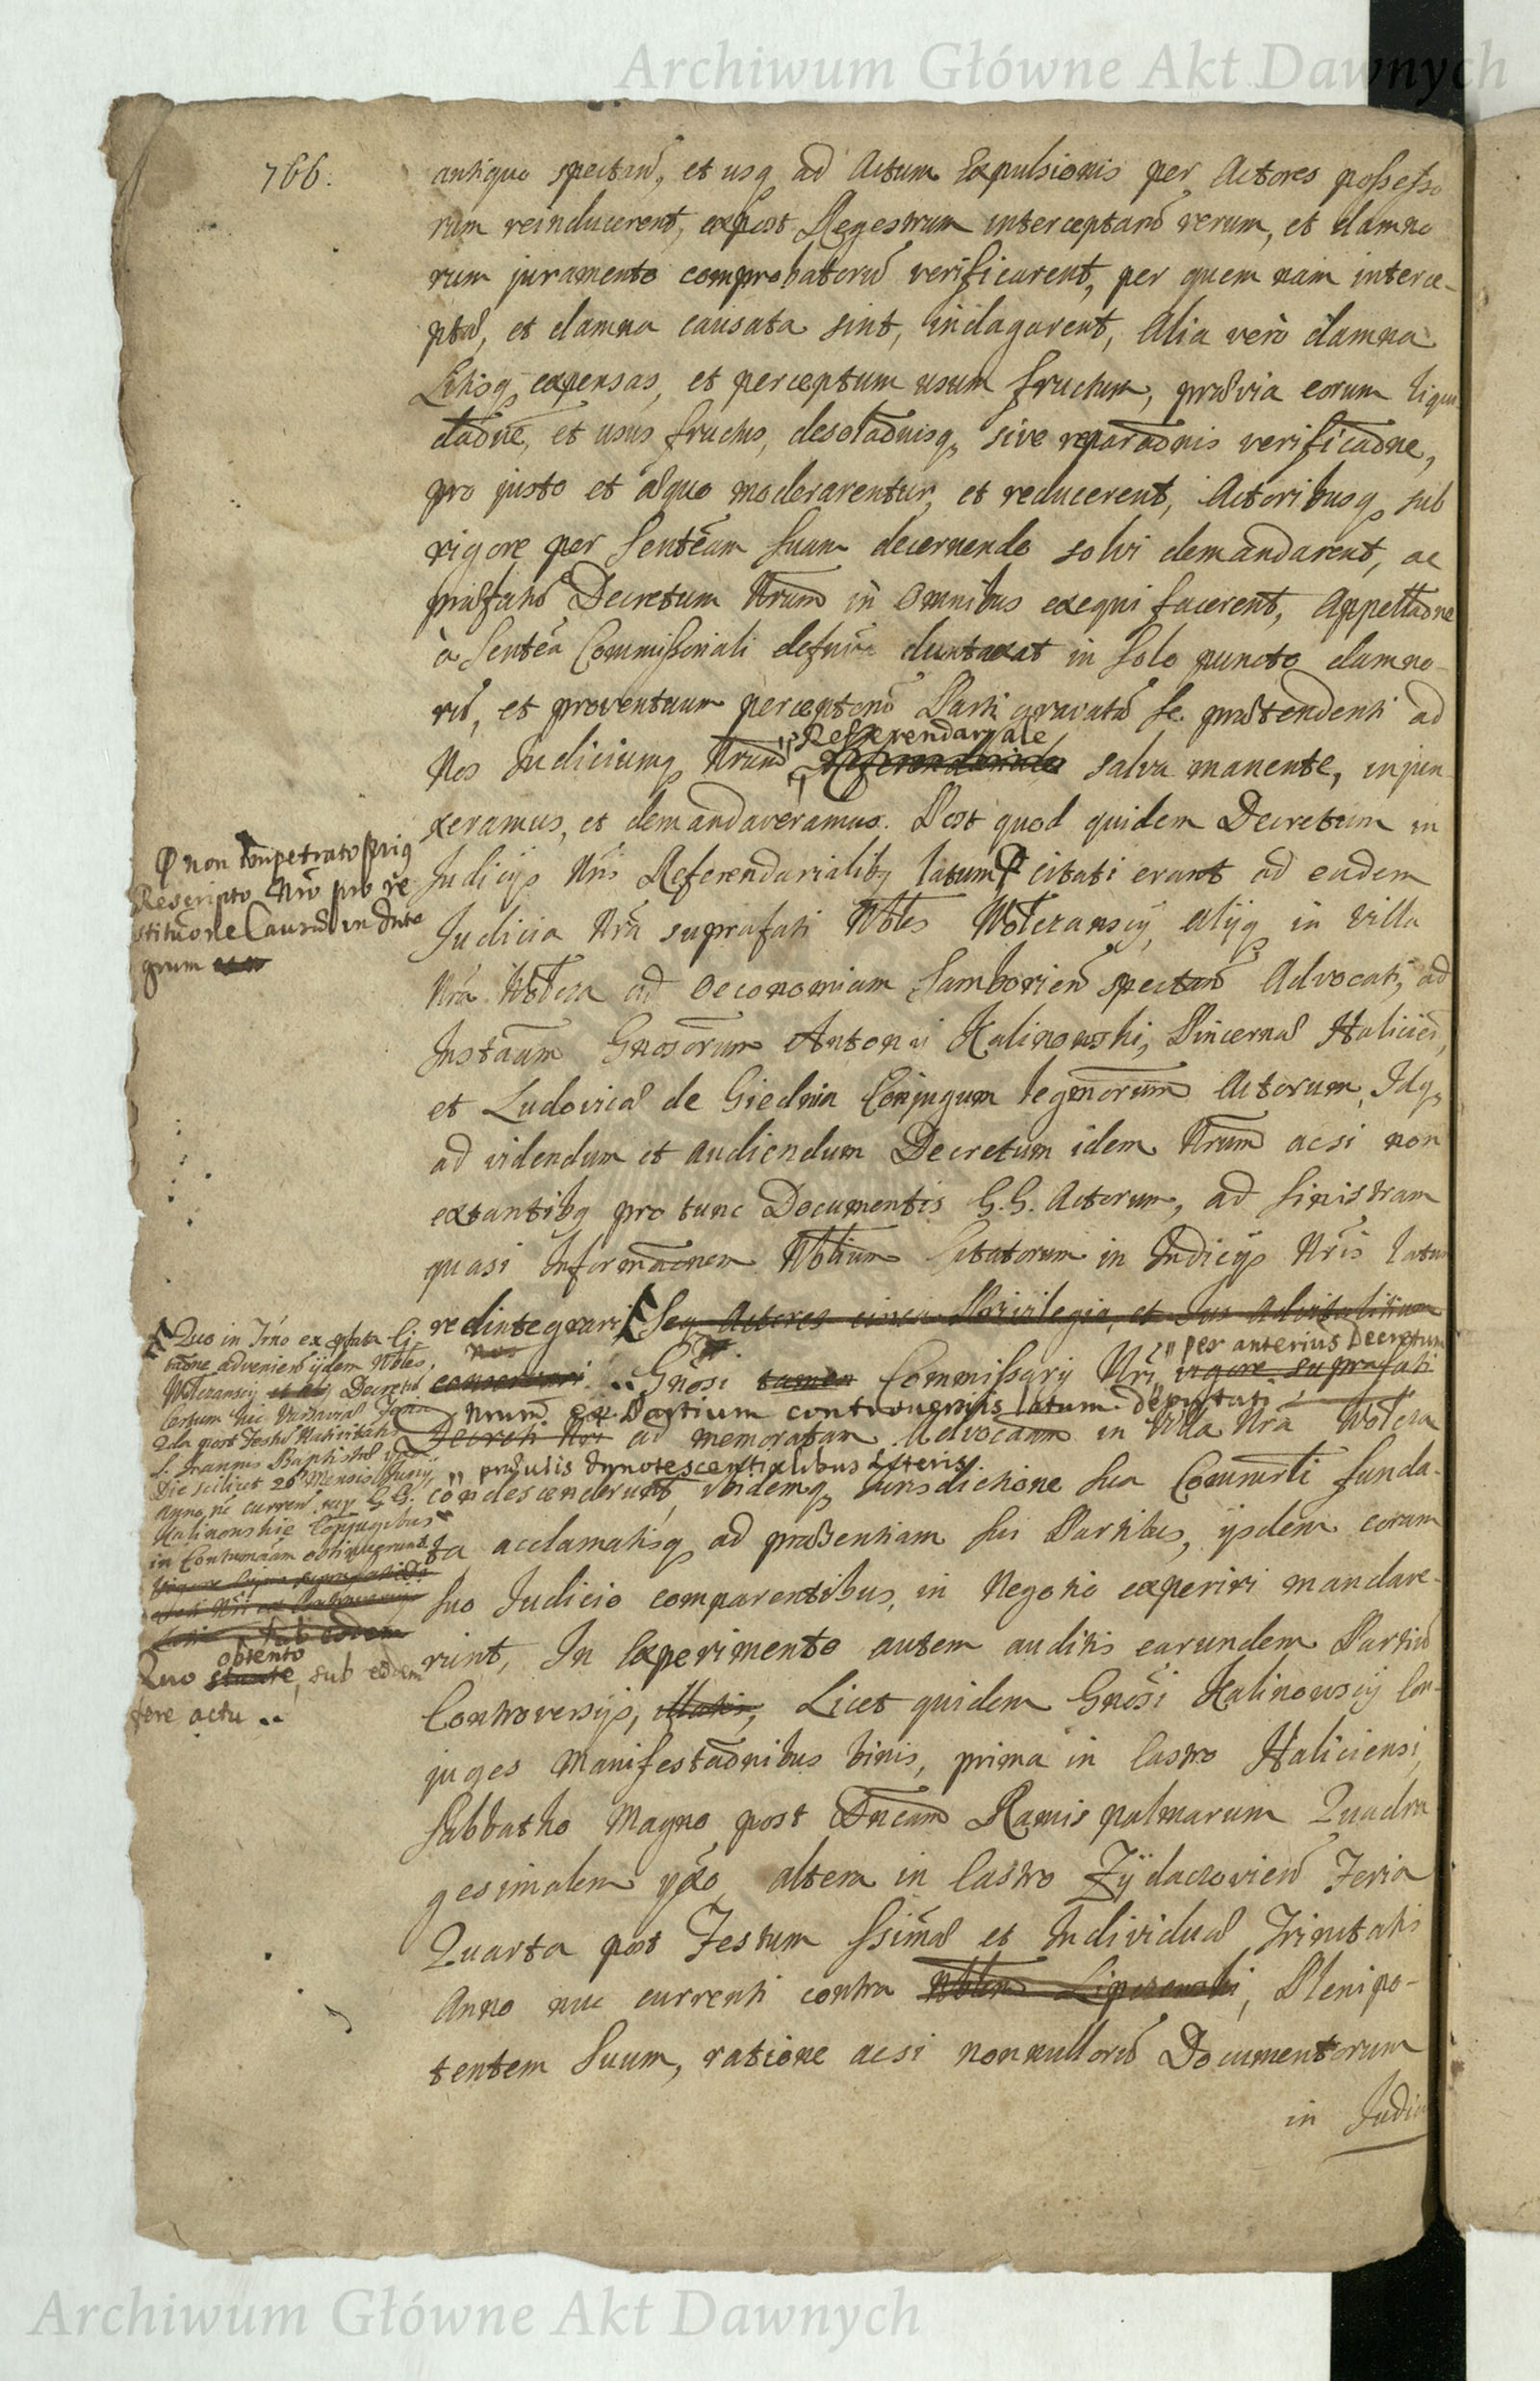 Archiwum Główne Akt Dawnych
766.
antiquo spectań, et usq ad Actum Expulsionis per Actores possesso
rum reinducerent, expost Regestrum interceptarū rerum, et damno
rum juramento comprobatorū verificarent, per quem nam interce-
ptæ, et damna causata sint, indagarent, Alia vero damna
Litisq expensas, et perceptum usum fructum, prævia eorum liqui
daōne, et usus fructus, desolaōnisq, sive reparaōnis verificaōne,
pro justo et æquo moderarentur, et reducerent, Actoribusq sub
rigore per Senteam suam decernendo solvi demandarent, ac
præfatū Decretum Nrum in omnibus exequi facerent, Appellaōne
à Sententa Commissoriali duntaxat in solo puncto damno-
rū, et proventuum perceptorū Parti gravatæ se prætendenti ad
Referendaryale
Nos Judiciumq Nrum Referendariale salva manente, injun
xeramus, et demandaveramus. Post quod quidem Decretum in
Judicijs Nris Referendarialibq latum citati erant ad eadem
Judicia Nra suprafati Nobles Wolczanscy, alijq in villa
Nra Wolcza ad Oeconomiam Samborień spectań Advocati, ad
Instaām Gnosorum Antonii Kalinowski, Pincernæ Halicień,
et Ludovicæ de Conjugum legmorum Actorum, Idq,
ad videndum et audiendum Decretum idem Nrum acsi non
extantibq pro tunc Documentis G.G. Actorum, ad sinistram
quasi Informaōnem Nobilium Citatorum in Judicijs Nris latum
redintegrari, Seq Actores circa Privilegia, et Jus Advitalitium
nos
per anterius Decretum
conservari Gnosi tamen Commissarij Nri vigore suprafati
Nrum ex Partium controversijs latum deputati
Decreti Nri ad memoratam Advocaām in Villa Nra Wolcza
prævijs Innotescentialibus Literis
condescenderunt, ibidemq Jurisdictione sua Commrli funda-
ta acclamatisq ad præsentiam sui Partibus, ijsdem coram
suo Judicio comparentibus, in Negotio experiri mandave-
rint, In Experimento autem auditis earundem Partiū
Controversijs, Licet quidem Gnosi Kalinowscy Con-
juges Manifestaōnibus binis, prima in Castro Haliciensi,
Sabbatho Magno post Dncam Ramis palmarum Quadra
gesimalem ypso, altera in Castro Zÿdaczovień Feria
Quarta post Festum Ssimæ et Individuæ Trinitatis
Anno nuc currenti contra Noblem, Plenipo-
tentem Suum, ratione acsi nonnullorū Documentorum
in Judici
non impetrato prius
Rescripto Nro pro re
stituōne Causæ in Inte
grum
Quo in Trno ex plata Ci-
taōne adveniens ijdem Nobles
Wolczanscy Decretū
Certum hic Varsaviæ Feria
2da post Festū Nativitatis
S. Joannis Baptistæ
Die scilicet 26 Mensis Junij
Anno nc curren sup G.G.
Kalinowskie Conjugibus
in Contumaām obtinuerunt
obtento
Quo stante, sub eodem
fere actu
Archiwum Główne Akt Dawnych